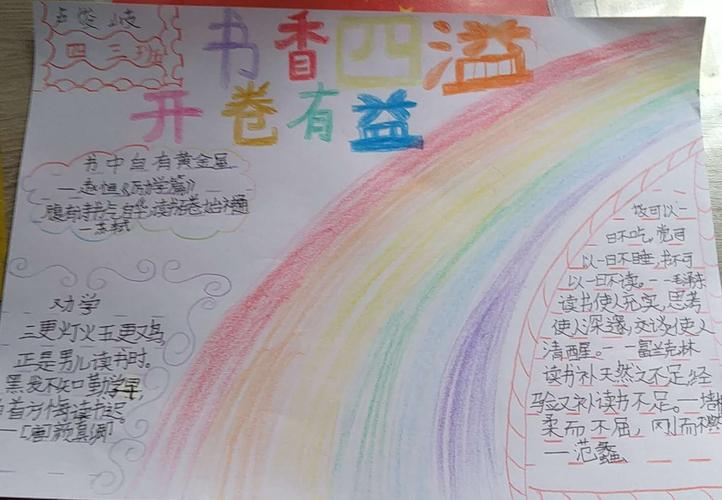 卢俊岐
四三班
书香四溢
开卷有益
书中自有黄金屋
—赵恒《励学篇》
腹有诗书气自华,读书万卷始通
—苏轼
劝学
三更灯火五更鸡,
正是男儿读书时。
黑发不知勤学早,
白首方悔读书迟。
—[唐]颜真卿
饭可以一
日不吃,觉可
以一日不睡,书不可
以一日不读。——毛泽东
读书使人充实,思考
使人深邃,交谈使人
清醒。——富兰克林
读书补天然之不足,经
验又补读书不足。—培根
柔而不屈,刚而不
—范蠡